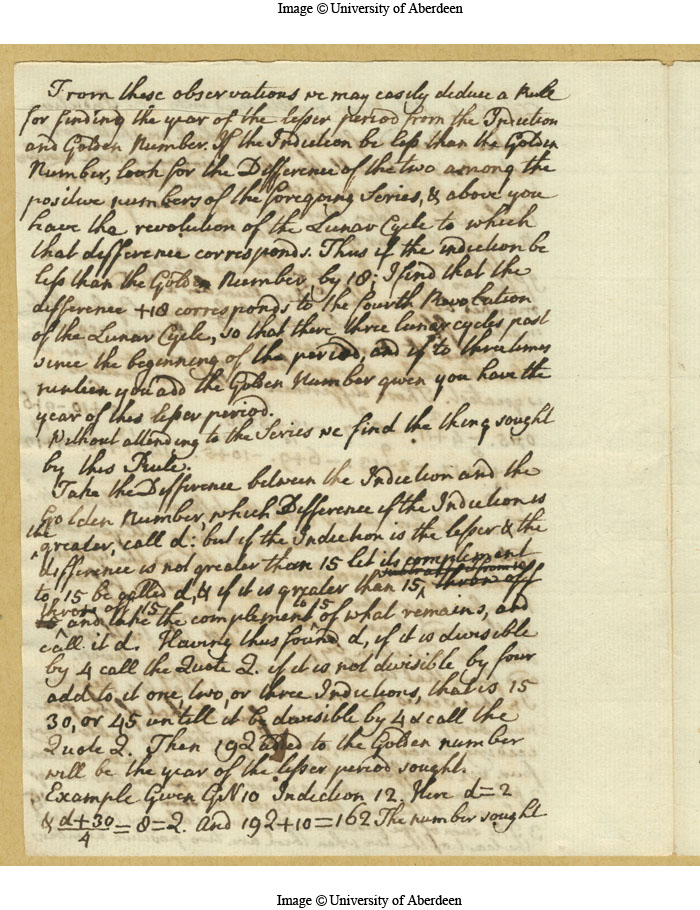 Image © University of Aberdeen
From these observations we may easily deduce a Rule
for finding the year of the lesser period from the Indiction
and Golden Number. If the Indiction be less than the Golden
Number, look for the Difference of the two among the
positive numbers of the foregoing Series, & above you
have the revolution of the Lunar Cycle to which
that difference corresponds. Thus if the indiction be
less than the Golden Number by 18; I find that the
difference +18 corresponds to the Fourth Revolution
of the Lunar Cycle, so that there three lunar cycles past
since the beginning of the period, and if to three times
ninteen you add the Golden Number given you have the
year of this lesser period.
Without attending to the Series we find the thing sought
by this Rule.
Take the Difference between the Indiction and the
Golden Number, which Difference if the Indiction is
the
greater, call d: but if the Indiction is the lesser & the
difference is not greater than 15 let its complement
to 15 be called d, & if it is greater than 15 throw off
throw off 15 to 15
and take the complement of what remains, and
call it d. Having thus found d, if it is divisible
by 4 call the Quote Q. if it is not divisible by four
add to it one two, or three Indictions, that is 15
30, or 45 untill it be divisible by 4 & call the
Quote Q. Then 19Q added to the Golden number
will be the year of the lesser period sought.
Example Given GN 10 Indiction 12. Here d=2
& d+30/4 = 8 = Q. And 19Q+10=162 The number sought
Image © University of Aberdeen